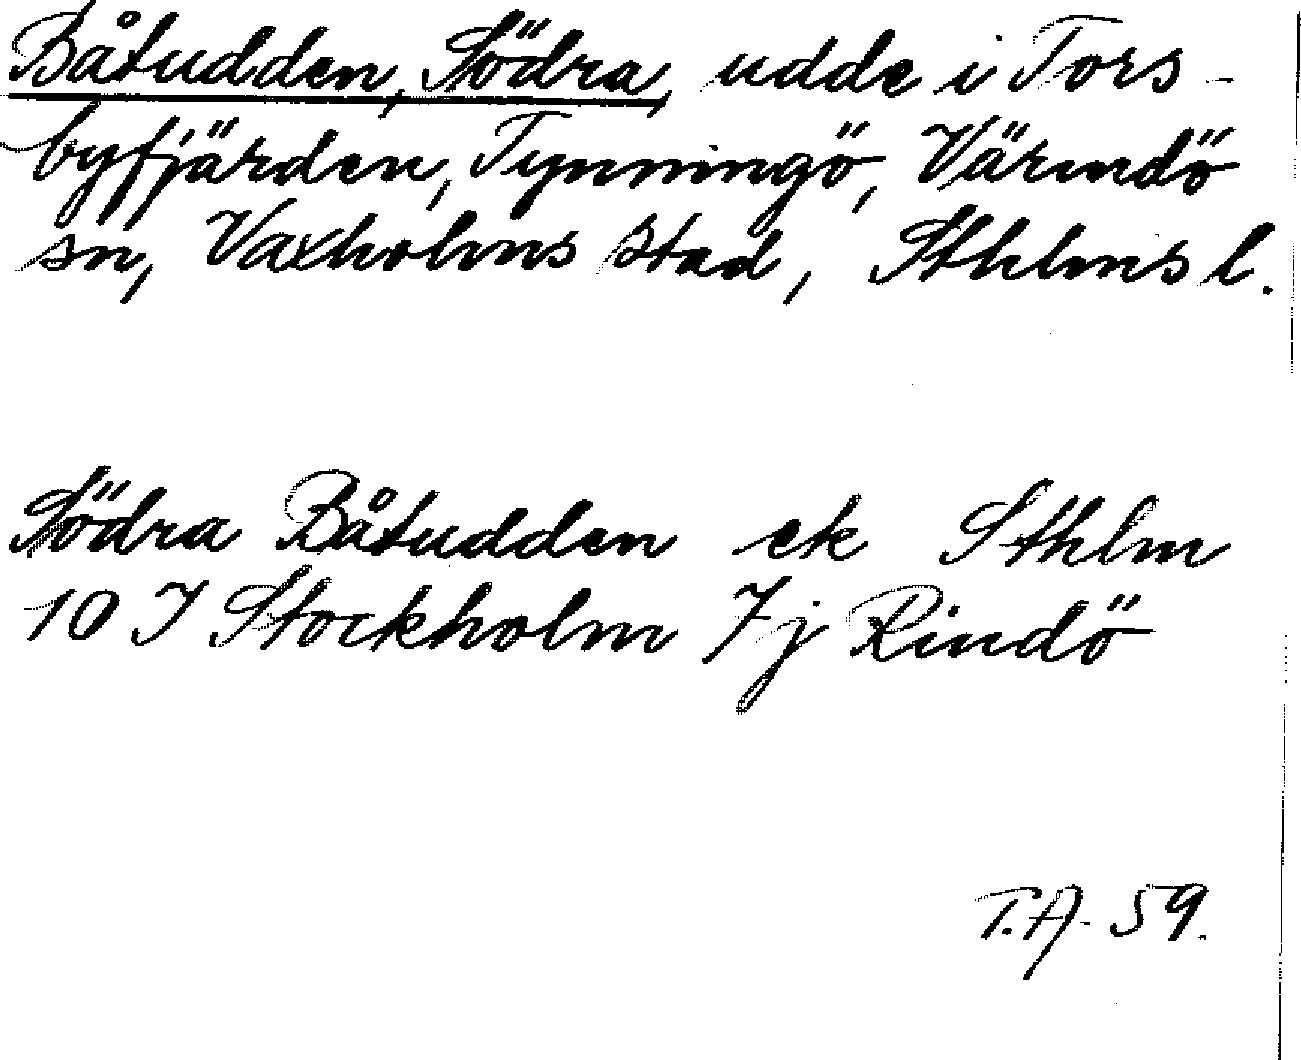 Båtudden, Södra, udde i Tors-
byfjärden, Tynningö, Värmdö
sn, Vaxholms stad, Sthlms l.
Södra Båtudden ek Sthlm
10 I Stockholm 7j Rindö
T.A. 59.